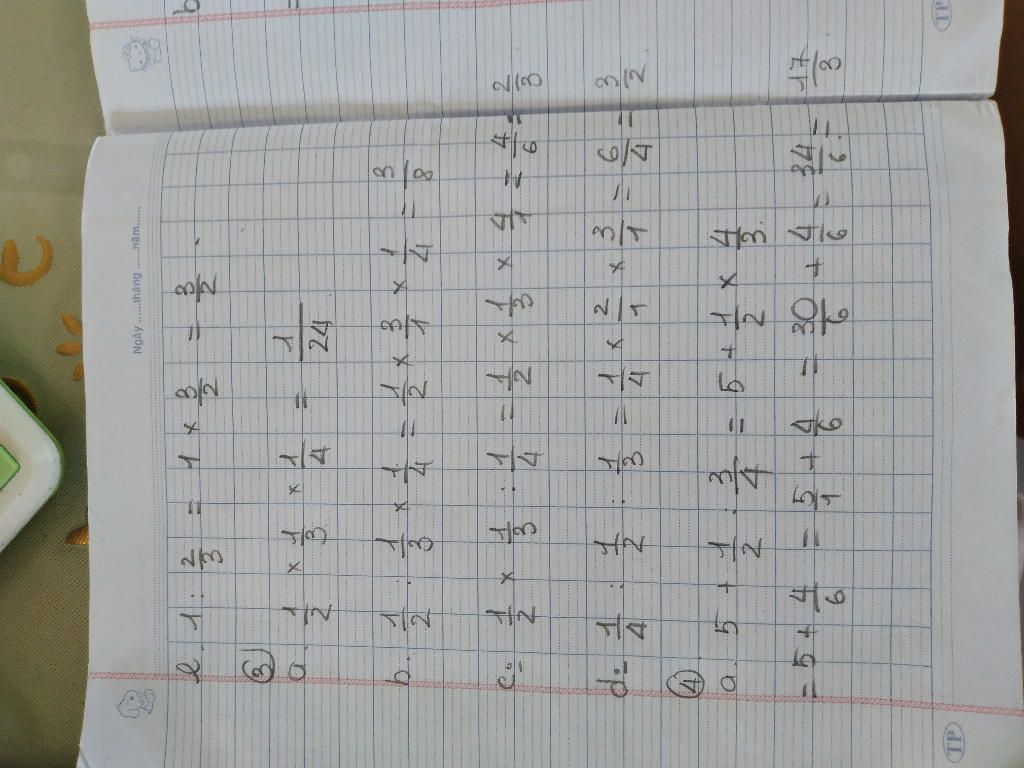 b
=
Ngày ......tháng ......năm.......
l. 1 : 2/3 = 1 × 3/2 = 3/2 .
③
a. 1/2 × 1/3 × 1/4 = 1/24
b. 1/2 : 1/3 × 1/4 = 1/2 × 3/1 × 1/4 = 3/8
c. 1/2 × 1/3 : 1/4 = 1/2 × 1/3 × 4/1 = 4/6 = 2/3
d. 1/4 : 1/2 : 1/3 = 1/4 × 2/1 × 3/1 = 6/4 = 3/2
④
a. 5 + 1/2 : 3/4 = 5 + 1/2 × 4/3.
= 5 + 4/6 = 5/1 + 4/6 = 30/6 + 4/6 = 34/6 = 17/3
TP
TP